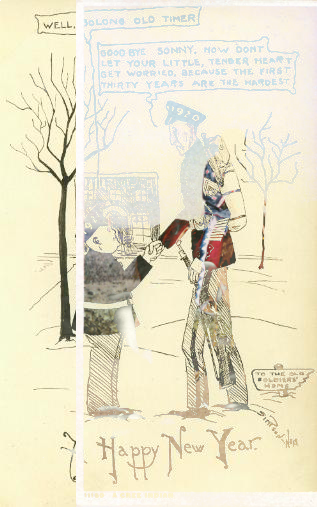 WELL, SOLONG OLD TIMER
GOOD-BYE SONNY, NOW DONT
LET YOUR LITTLE, TENDER HEART
GET WORRIED, BECAUSE THE FIRST
THIRTY YEARS ARE THE HARDEST.
1920
TO THE OLD
SOLDIERS'
HOME
Happy New Year.